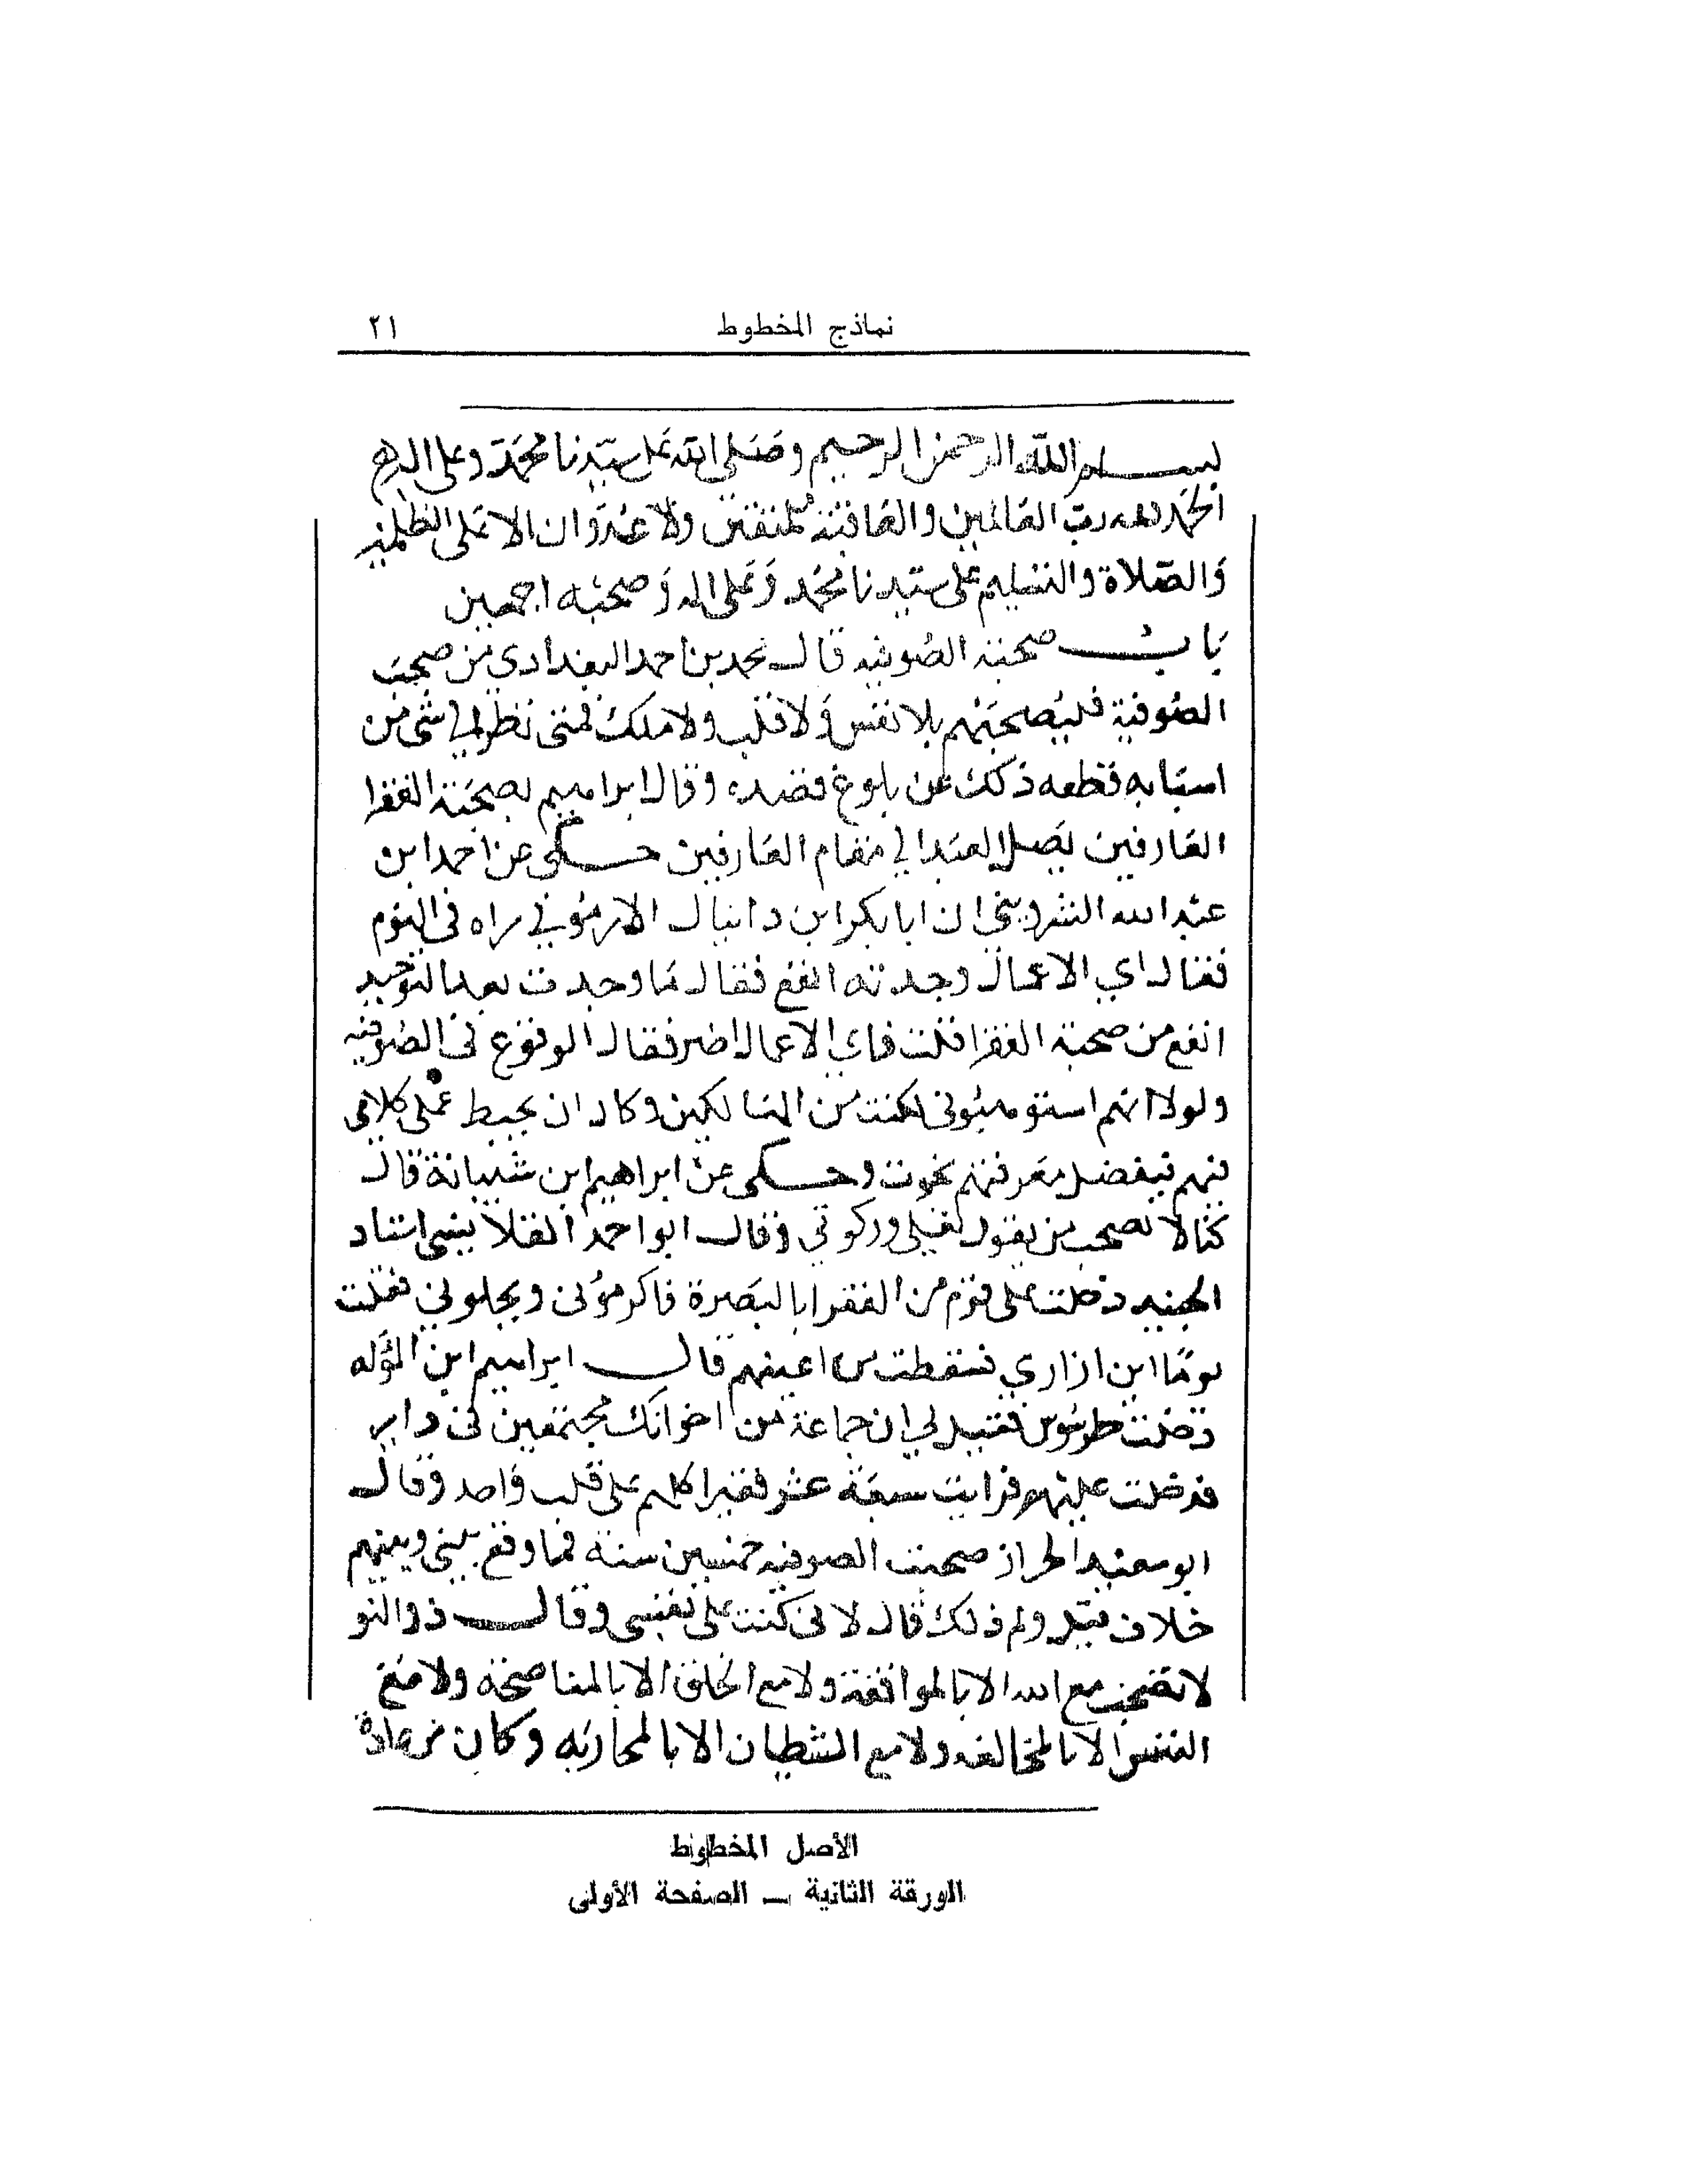 نماذج المخطوط ٢١
بسم الله الرحمن الرحيم وصلى الله على سيدنا محمد وعلى اله
الحمد لله رب العالمين والعاقبة للمتقين ولا عدوان الا على الظلمين
والصلاة والتسليم على سيدنا محمد وعلى اله وصحبه اجمعين
باب صحبة الصوفيه قال محمد بن احمد البغدادي من صحب
الصوفية فليصحبهم بلا نفس ولا قلب ولا ملك فمتى نظر الى شى من
اسبابه قطعه ذلك عن بلوغ قصده وقال ابراهيم بصحبة الفقرا
العارفين يصل العبد الى مقام العارفين حكى عن احمد ابن
عبد الله ان ابا بكر ابن دانيال الارموي راه فى النوم
فقال اي الاعمال وجدته انفع فقال ما وجدت بعد التوحيد
انفع من صحبة الفقرا قلت فاي الاعمال اضر فقال الوقوع فى الصوفيه
ولولا انهم استوهبوني لكنت من الهالكين وكاد ان يحبط عملى كلامى
فيهم فبفضل معرفتهم نجوت وحكى عن ابراهيم ابن شيبانة قال
كنا لا نصحب من يقول نعلي وركوتي وقال ابو احمد القلانسى استاد
الجنيد دخلت على قوم من الفقرا بالبصرة فاكرموني وبجلوني فقلت
يومًا اين ازاري فسقطت من اعينهم قال ابراهيم ابن المؤله
دخلت طرسوس فقيل لي ان جماعة من اخوانك مجتمعين فى دار
فدخلت عليهم فرايت سبعة عشر فقيرا كلهم على قلب واحد وقال
ابو سعيد الخراز صحبت الصوفيه خمسين سنة فما وقع بيني وبينهم
خلاف قيل ولم ذلك قال لانى كنت على نفسى وقال ذو النو
لا تصحب مع الله الا بالموافقة ولا مع الخلق الا بالمناصحة ولا مع
النفس الا بالمخالفه ولا مع الشطيان الا بالمحاربه وكان من عادة
الأصل المخطوط
الورقة الثانية – الصفحة الأولى